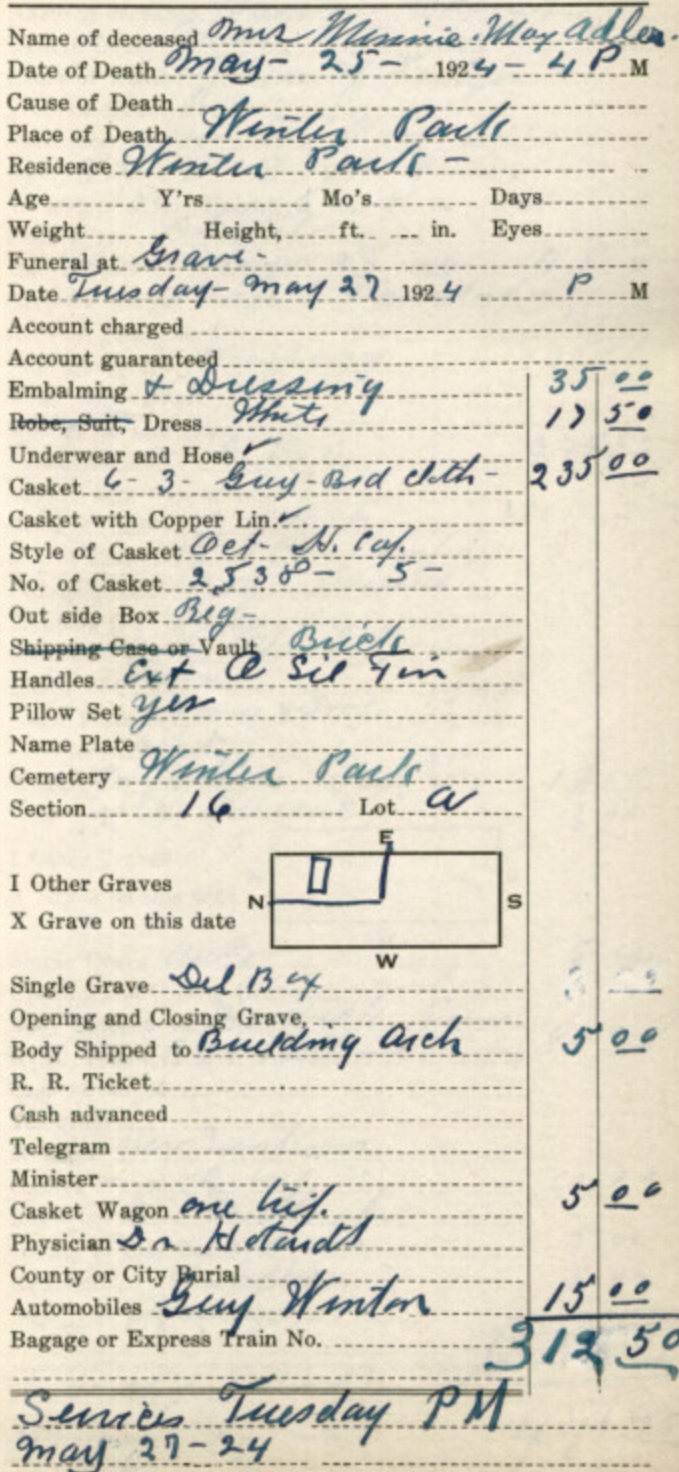 Name of deceased Mrs Minnie May Adler
Date of Death May - 25 - 1924 - 4 P M
Cause of Death
Place of Death Winter Park
Residence Winter Park -
Age Y'rs Mo's Days
Weight Height, ft. in. Eyes
Funeral at Grave -
Date Tuesday - May 27 1924 P M
Account charged
Account guaranteed
Embalming & Dressing 35 00
Robe, Suit, Dress White 17 50
Underwear and Hose ✓
Casket 6 - 3 - Grey - Brd cloth - 235 00
Casket with Copper Lin. ✓
Style of Casket Oct -
No. of Casket 2538 - 5 -
Out side Box Reg -
Shipping Case or Vault Brick
Handles Ext Sil
Pillow Set yes
Name Plate
Cemetery Winter Park
Section 16 Lot A
E
I Other Graves
N S
X Grave on this date
W
Single Grave Del Box
Opening and Closing Grave,
Body Shipped to Building Arch 5 00
R. R. Ticket
Cash advanced
Telegram
Minister
Casket Wagon one trip. 5 00
Physician Dr
County or City Burial
Automobiles Guy Winton 15 00
Bagage or Express Train No. 312 50
Services Tuesday PM
May 27 - 24